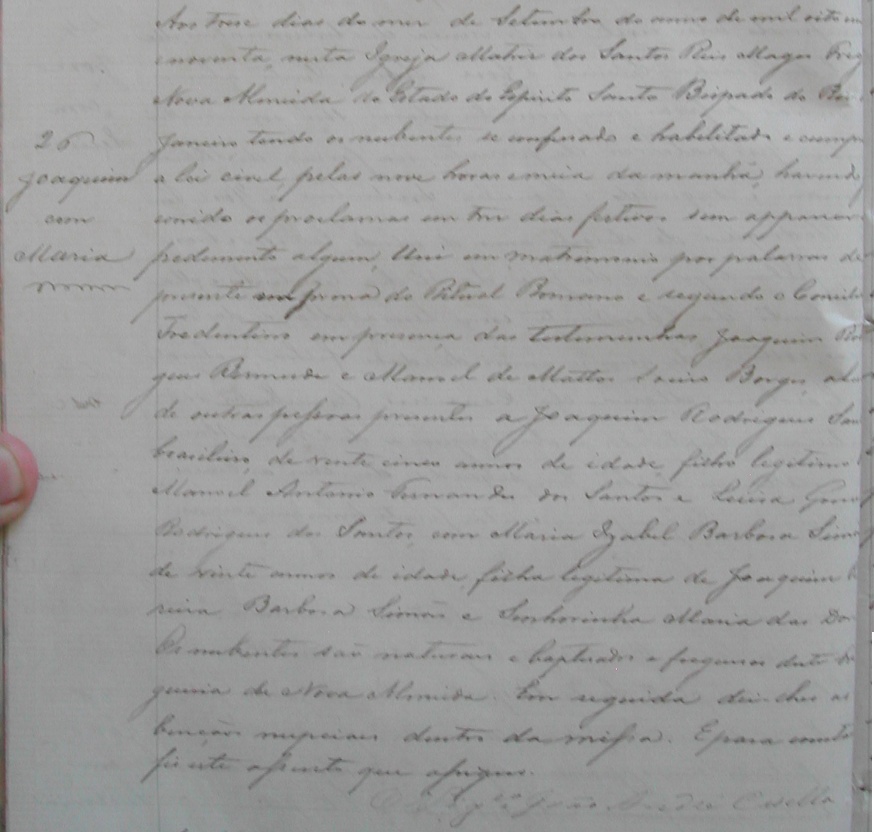 Aos trese dias do mez de Setembro do anno de mil oito
e noventa, nesta Igreja Matriz dos Santos Reis Magos Freg
Nova Almeida do Estado do Espirito Santo Bispado do Rio
26
Janeiro tendo os nubentes se confessado e habilitado e cump
Joaquim
a lei civel, pelas nove horas e meia da manhã, havend
com
corrido os proclamas em tres dias festivos sem apparecer
Maria
pedimento algum, Uni em matrimonio por palavras de
presente em forma do Ritual Romano e segundo o Concilio
Tredentino em presença das testemunhas, Joaquim Ro
gues Bermude e Manoel de Mattos Borges, alem
de outras pessoas presentes a Joaquim Rodrigues San
brasileiro, de vente cinco annos de idade, filho legitimo
Manoel Antonio Fernandes dos Santos e Luisa
Rodrigues dos Santos, com Maria Izabel Barbosa Simo
de vinte annos de idade, filha legitima de Joaquim
reira Barbosa Simões e Senhorinha Maria das Do
Os nubentes são naturaes e baptisados e freguesos desta
guesia de Nova Almeida. Em seguida dei-lhes as
bençãos nupciaes dentro da missa. E para constar
fiz este assento que assigno.
João André Casella